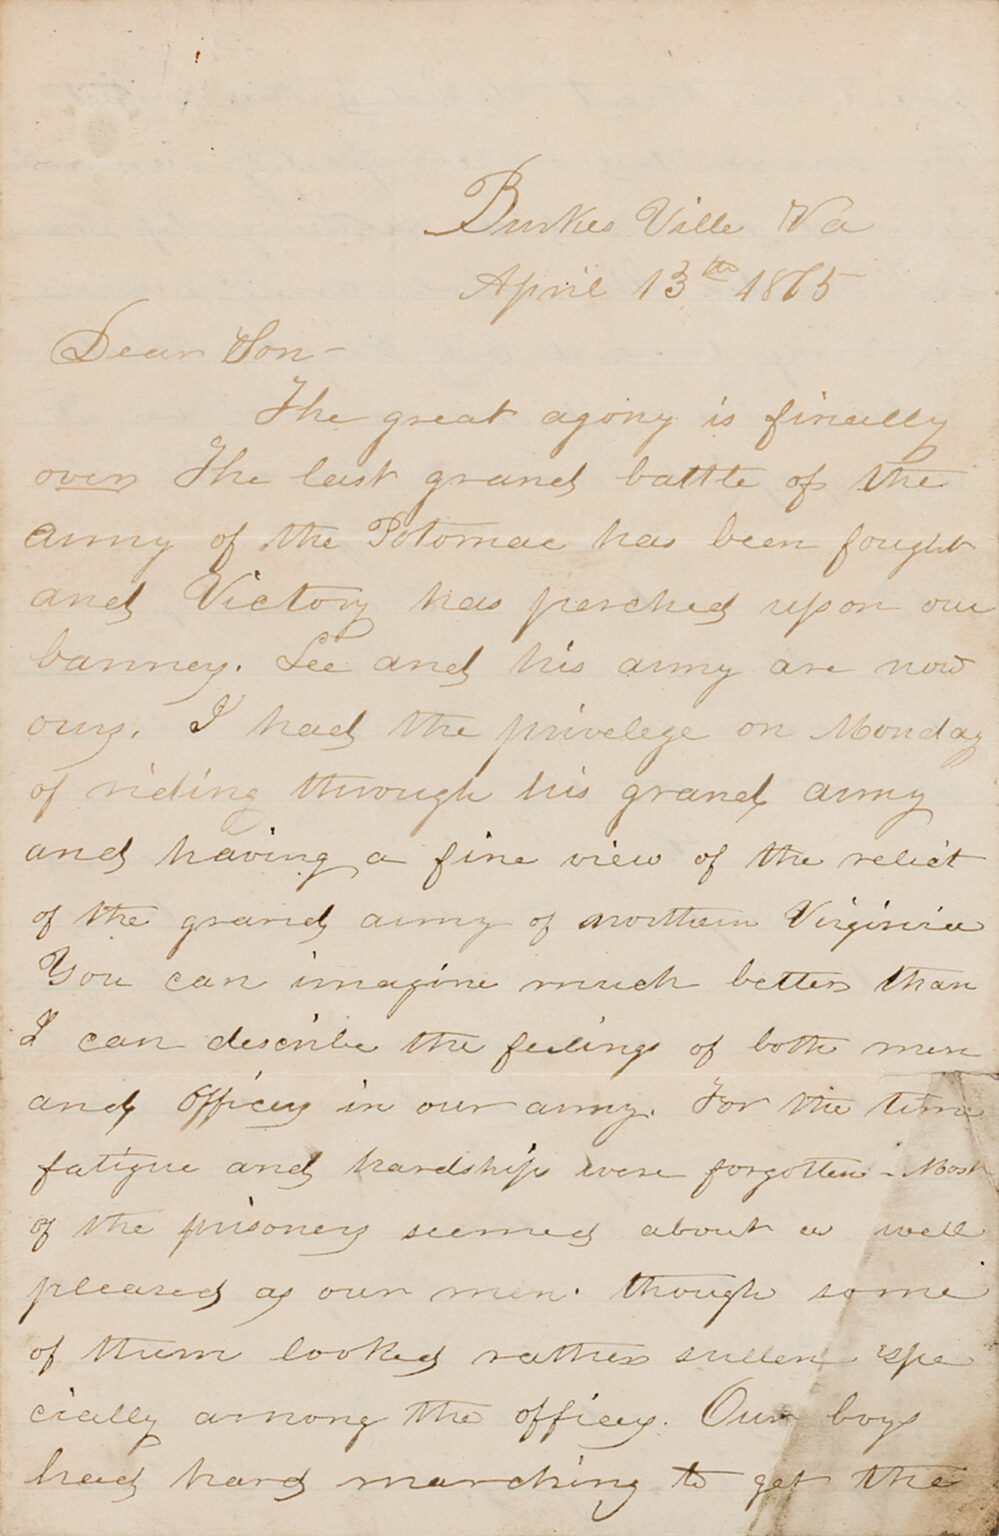 Burkes Ville Va
April 13th 1865
Dear Son-
The great agony is finally
over The last grand battle of the
army of the Potomac has been fought
and Victory has perched upon our
banners. Lee and his army are now
ours. I had the privelege on Monday
of riding through his grand army
and having a fine view of the relict
of the grand army of northern Virginia
You can imagine much better than
I can describe the feelings of both men
and officers in our army. For the time
fatigue and hardships were forgotten - Most
of the prisoners seemed about as well
pleased as our men. though some
of them looked rather sullen espe
cially among the officers. Our boys
had hard marching to get the